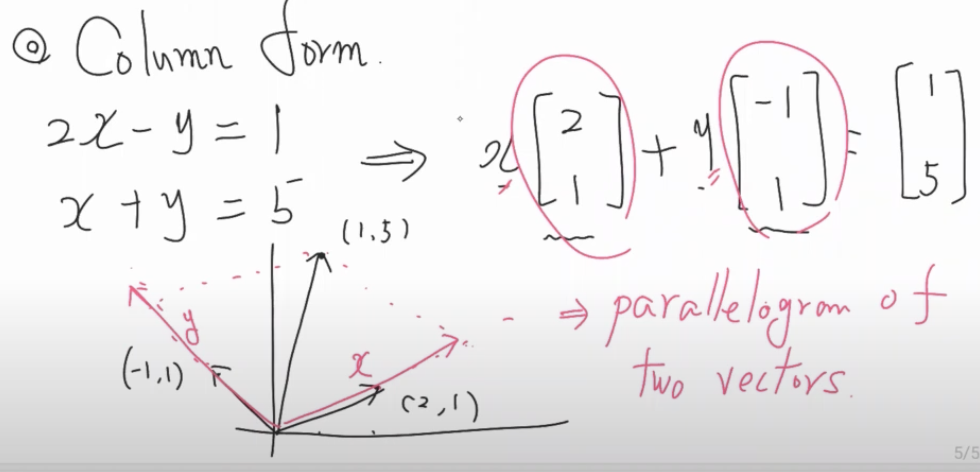 ◎ Column form.
2x - y = 1
x + y = 5
⇒ x [2 1] + y [-1 1] = [1 5]
(1,5)
y
(-1,1)
x
(2,1)
⇒ parallelogram of
two vectors.
5/5